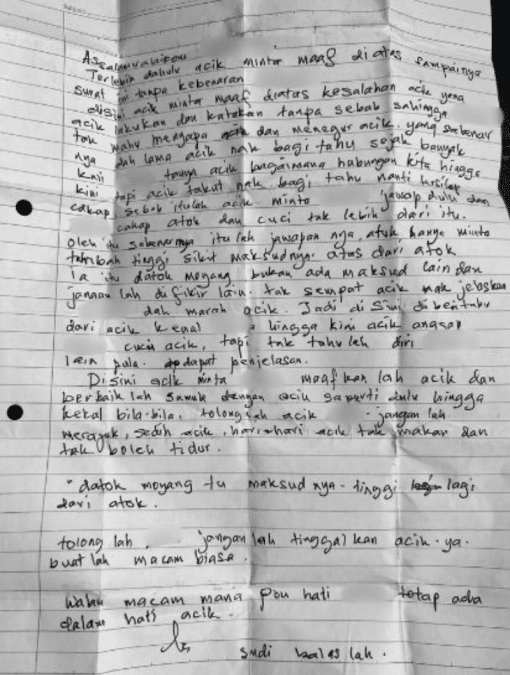 Assalamualaikum
Terlebih dahulu acik minta maaf di atas sampainya
surat ini tanpa kebenaran
disini acik minta maaf diatas kesalahan acik yang
acik lakukan dan katakan tanpa sebab sehingga
tak mahu mengapa dan menegur acik. yang sebenar
nya dah lama acik nak bagi tahu sejak banyak
kali tanya acik bagaimana hubungan kita hingga
kini tapi acik takut nak bagi tahu nanti
cakap sebab itulah acik minta jawap dulu dan
cakap atok dan cucu tak lebih dari itu.
oleh itu sebenarnya itu lah jawapan nya, atok hanya minta
tinggi sikit maksudnya. atas dari atok
Ia itu datok moyang bukan ada maksud lain dan
jangan lah di fikir lain. tak sempat acik nak jelaskan
dah marah acik. Jadi di sini
dari acik kenal hingga kini acik anggap
cucu acik, tapi tak tahu lah diri
lain pula. dapat penjelasan.
Disini acik minta maafkan lah acik dan
berbaik lah semula dengan acik saperti dulu hingga
kekal bila-bila, tolong lah acik jangan lah
merajuk, sedih acik, hari-hari acik tak makan dan
tak boleh tidur.
"datok moyang tu maksud nya-tinggi lagi
dari atok.
tolong lah, jangan lah tinggalkan acik. ya.
buat lah macam biasa.
Walau macam mana pon hati tetap ada
dalam hati acik.
sudi balas lah.